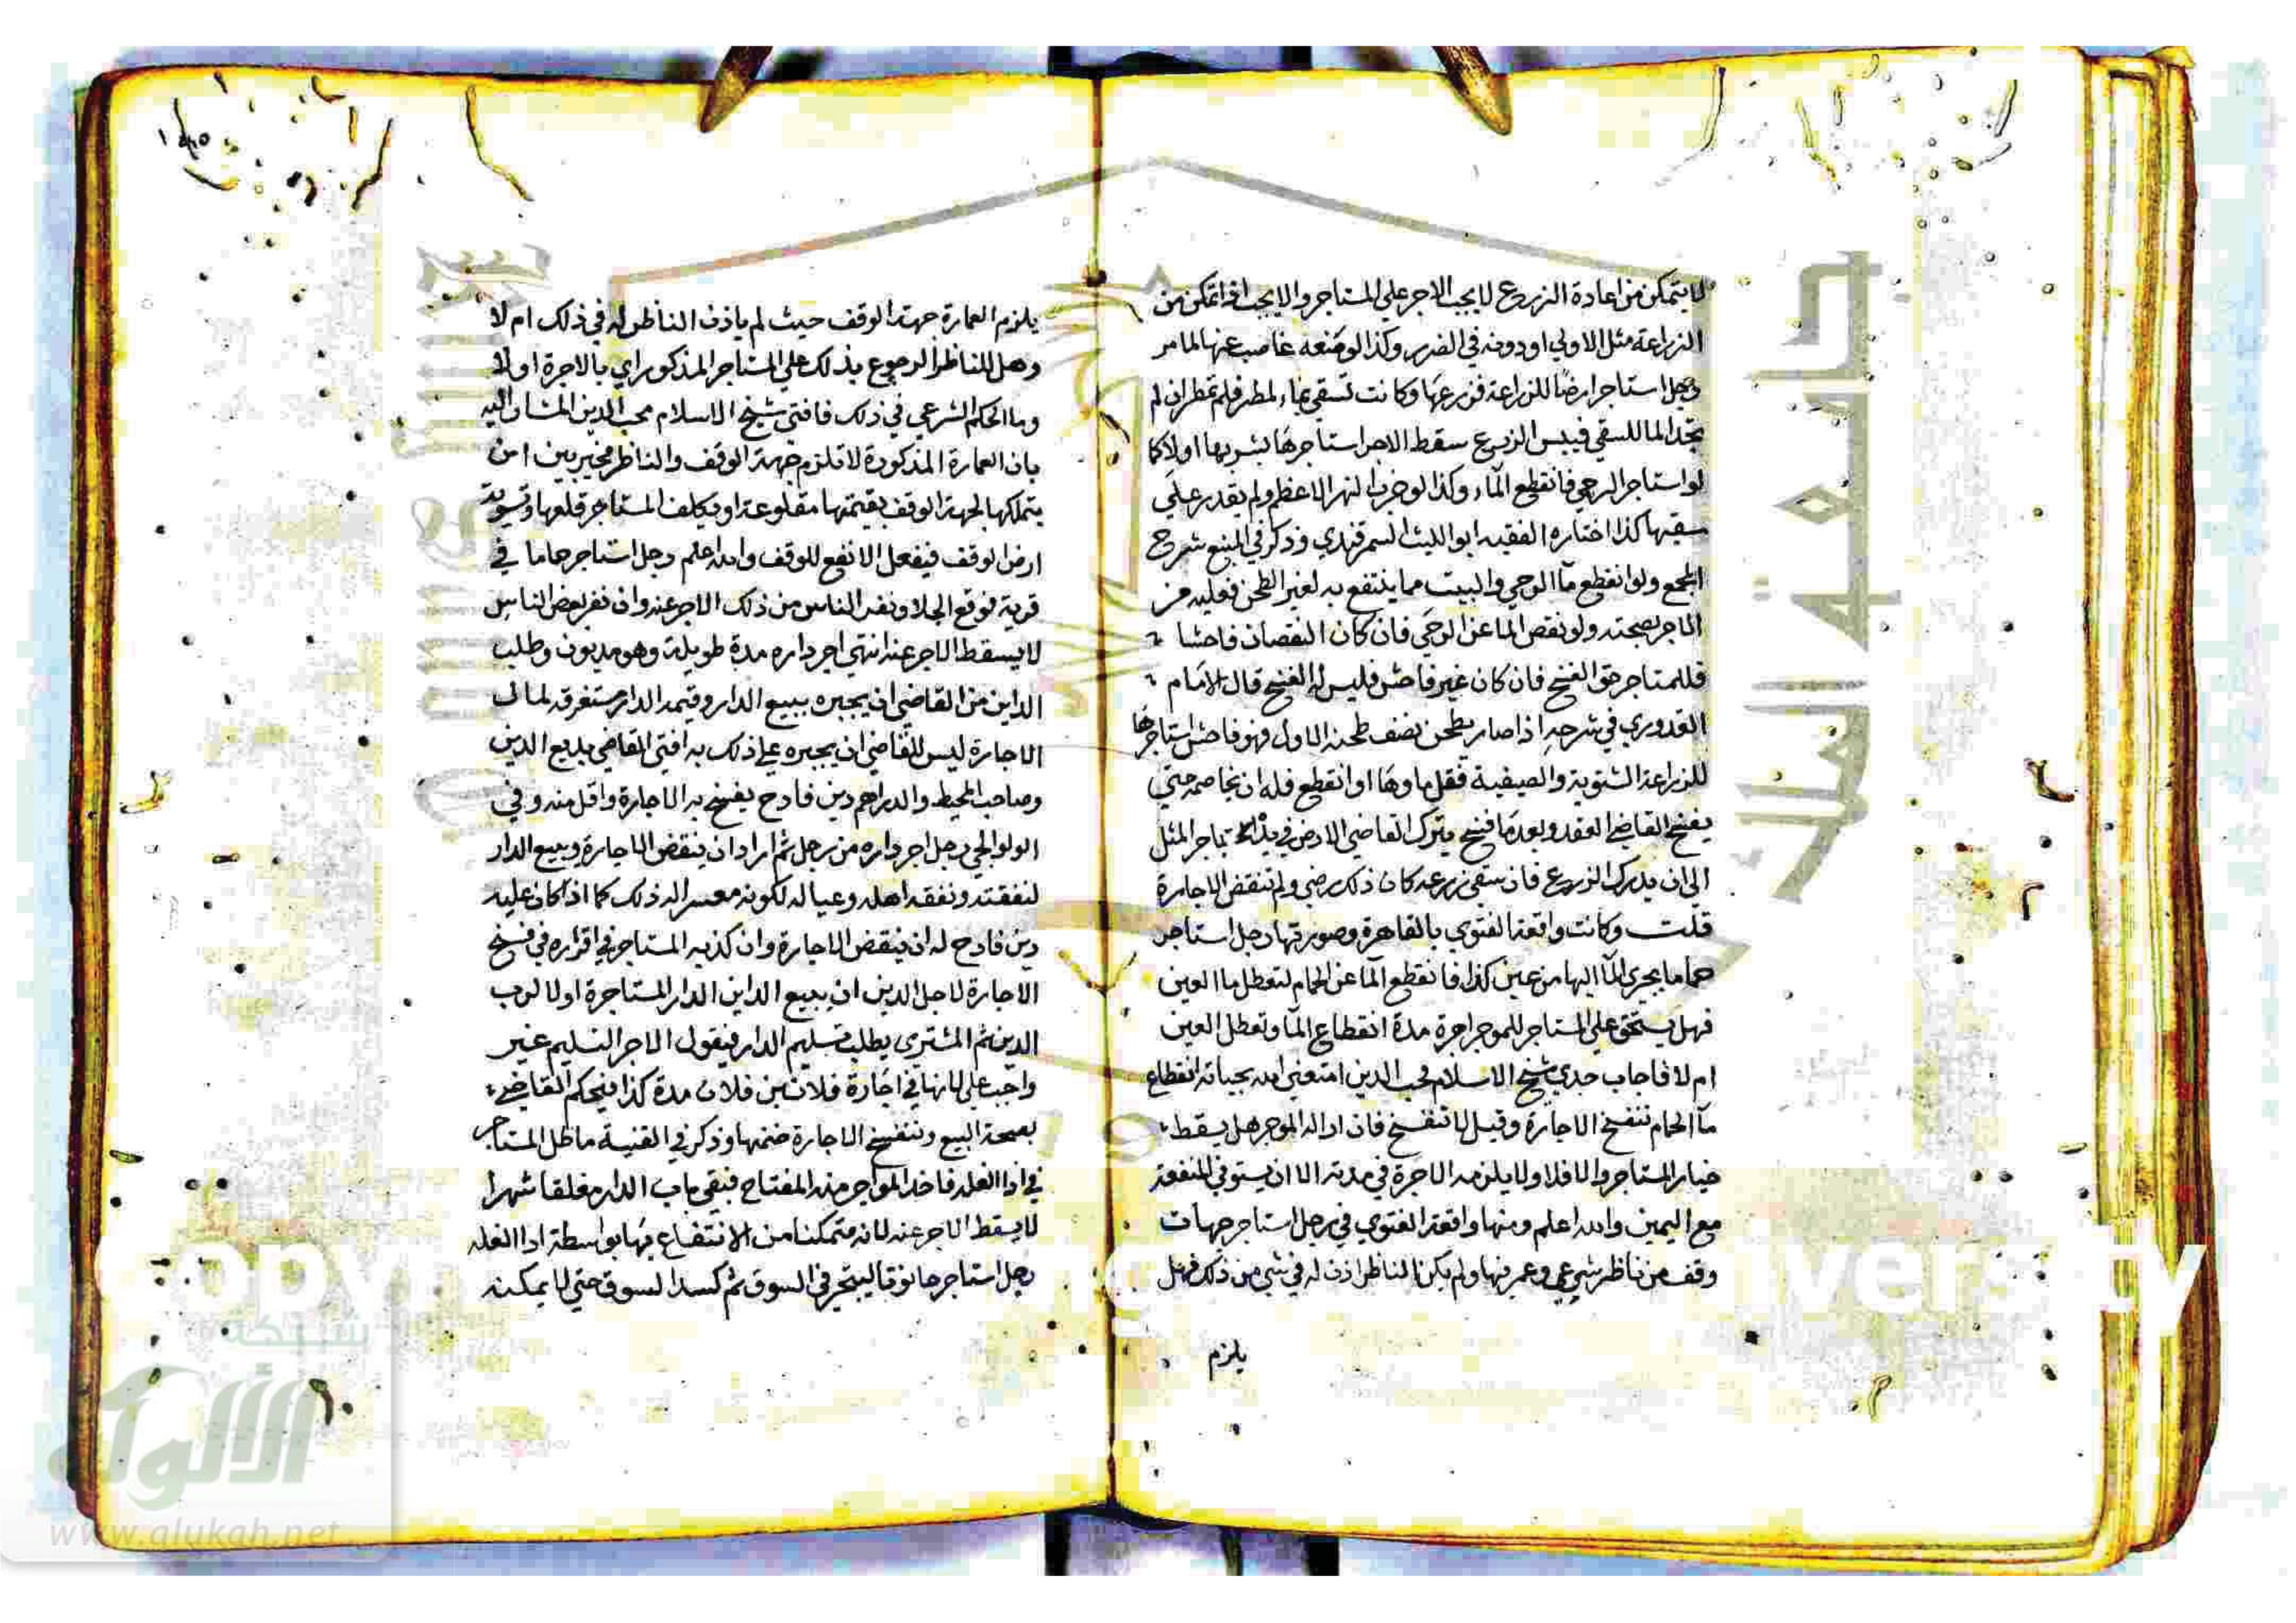 لا يتمكن من اعادة الزروع لا يجب الاجر على المستاجر والا يجب اذا تمكن من
الزراعة مثل الاولي او دونه في الضرر وكذا لو منعه غاصب عنها لما مر
رجل استاجر ارضا للزراعة فزرعها وكانت تسقي بماء المطر فلم تمطر ان لم
يجد الما للسقي فيبس الزرع سقط الاجر استاجرها بشربها اولا كما
لو استاجر الرحي فانقطع الماء وكذا لو خرب النهر الاعظم ولم يقدر علي
سقيها كذا اختاره الفقيه ابو الليث السمرقندي وذكر في المنبع شرح
المجمع ولو انقطع ما الرحي والبيت مما ينتفع به لغير الطحن فعليه من
الاجر بحصته ولو نقص الما عن الرحي فان كان النقصان فاحشا
فللمستاجر حق الفسخ فان كان غير فاحش فليس له الفسخ قال الامام
القدوري في شرحه اذا صار يطحن نصف طحنه الاول فهو فاحش استاجرها
للزراعة الشتوية والصيفية فقل ماوها او انقطع فله ان يخاصمه حتي
يفسخ القاضي العقد وبعدما فسخ يترك القاضي الارض في يده باجر المثل
الي ان يدرك الزروع فان سقي زرعه كان ذلك رضي ولم تنقض الاجارة
قلت وكانت واقعة الفتوي بالقاهرة وصورتها رجل استاجر
حماما يجري الما اليها من عين كذا فانقطع الما عن الحمام لتعطل ما العين
فهل يستحق علي المستاجر للموجر اجرة مدة انقطاع الما وتعطل العين
ام لا فاجاب جدي شيخ الاسلام محب الدين امتعني الله بحياته انقطاع
ما الحمام تنفسخ الاجارة وقيل لا تنفسخ فان ازاله الموجر هل يسقط
خيار المستاجر والا فلا ولا يلزمه الاجرة في مدته الا ان يستوفي المنفعة
مع اليمين والله اعلم ومنها واقعة الفتوي في رجل استاجر جهات
وقف من ناظر شرعي وعمر فيها ولم يكن الناظر اذن له في شي من ذلك فهل
يلزم
يلزم العمارة جهة الوقف حيث لم ياذن الناظر له في ذلك ام لا
وهل للناظر الرجوع بذلك علي المستاجر المذكور اي بالاجرة او لا
وما الحكم الشرعي في ذلك فافتي شيخ الاسلام محب الدين المشار اليه
بان العمارة المذكورة لا تلزم جهة الوقف والناظر مخير بين ان
يتملكها لجهة الوقف بقيمتها مقلوعة او يكلف المستاجر قلعها وتسوية
ارض الوقف فيفعل الانفع للوقف والله اعلم رجل استاجر حماما في
قرية فوقع الجلا ونفر الناس من ذلك الاجر عنه وان نفر بعض الناس
لا يسقط الاجر عنه انتهي اجر داره مدة طويلة وهو مديون وطلب
الداين من القاضي ان يجبره ببيع الدار وقيمة الدار مستغرقة لمال
الاجارة ليس للقاضي ان يجبره علي ذلك به افتي القاضي بديع الدين
وصاحب المحيط والدراهم دين فادح يفسخ به الاجارة واقل منه وفي
الولوالجي رجل اجر داره من رجل ثم اراد ان ينقض الاجارة ويبيع الدار
لنفقته ونفقة اهله وعياله لكونه معسرا له ذلك كما اذا كان عليه
دين فادح له ان ينقض الاجارة وان كذبه المستاجر في اقراره في فسخ
الاجارة لاجل الدين ان يبيع الداين الدار المستاجرة اولا لرب
الدين ثم المشتري يطلب تسليم الدار فيقول الاجر التسليم غير
واجب علي لانها في اجارة فلان بن فلان مدة كذا فيحكم القاضي
بصحة البيع وتنفسخ الاجارة ضمنها وذكر في القنية ماطل المستاجر
في اذا الغله فاخذ المواجر منه المفتاح فبقي باب الدار مغلقا شهرا
لا يسقط الاجر عنه لانه متمكنا من الانتفاع بها بواسطة ادا الغله
رجل استاجر حانوتا ليتجر في السوق ثم كسد السوق حتي لا يمكنه
شبكة
الألوكة
www.alukah.net